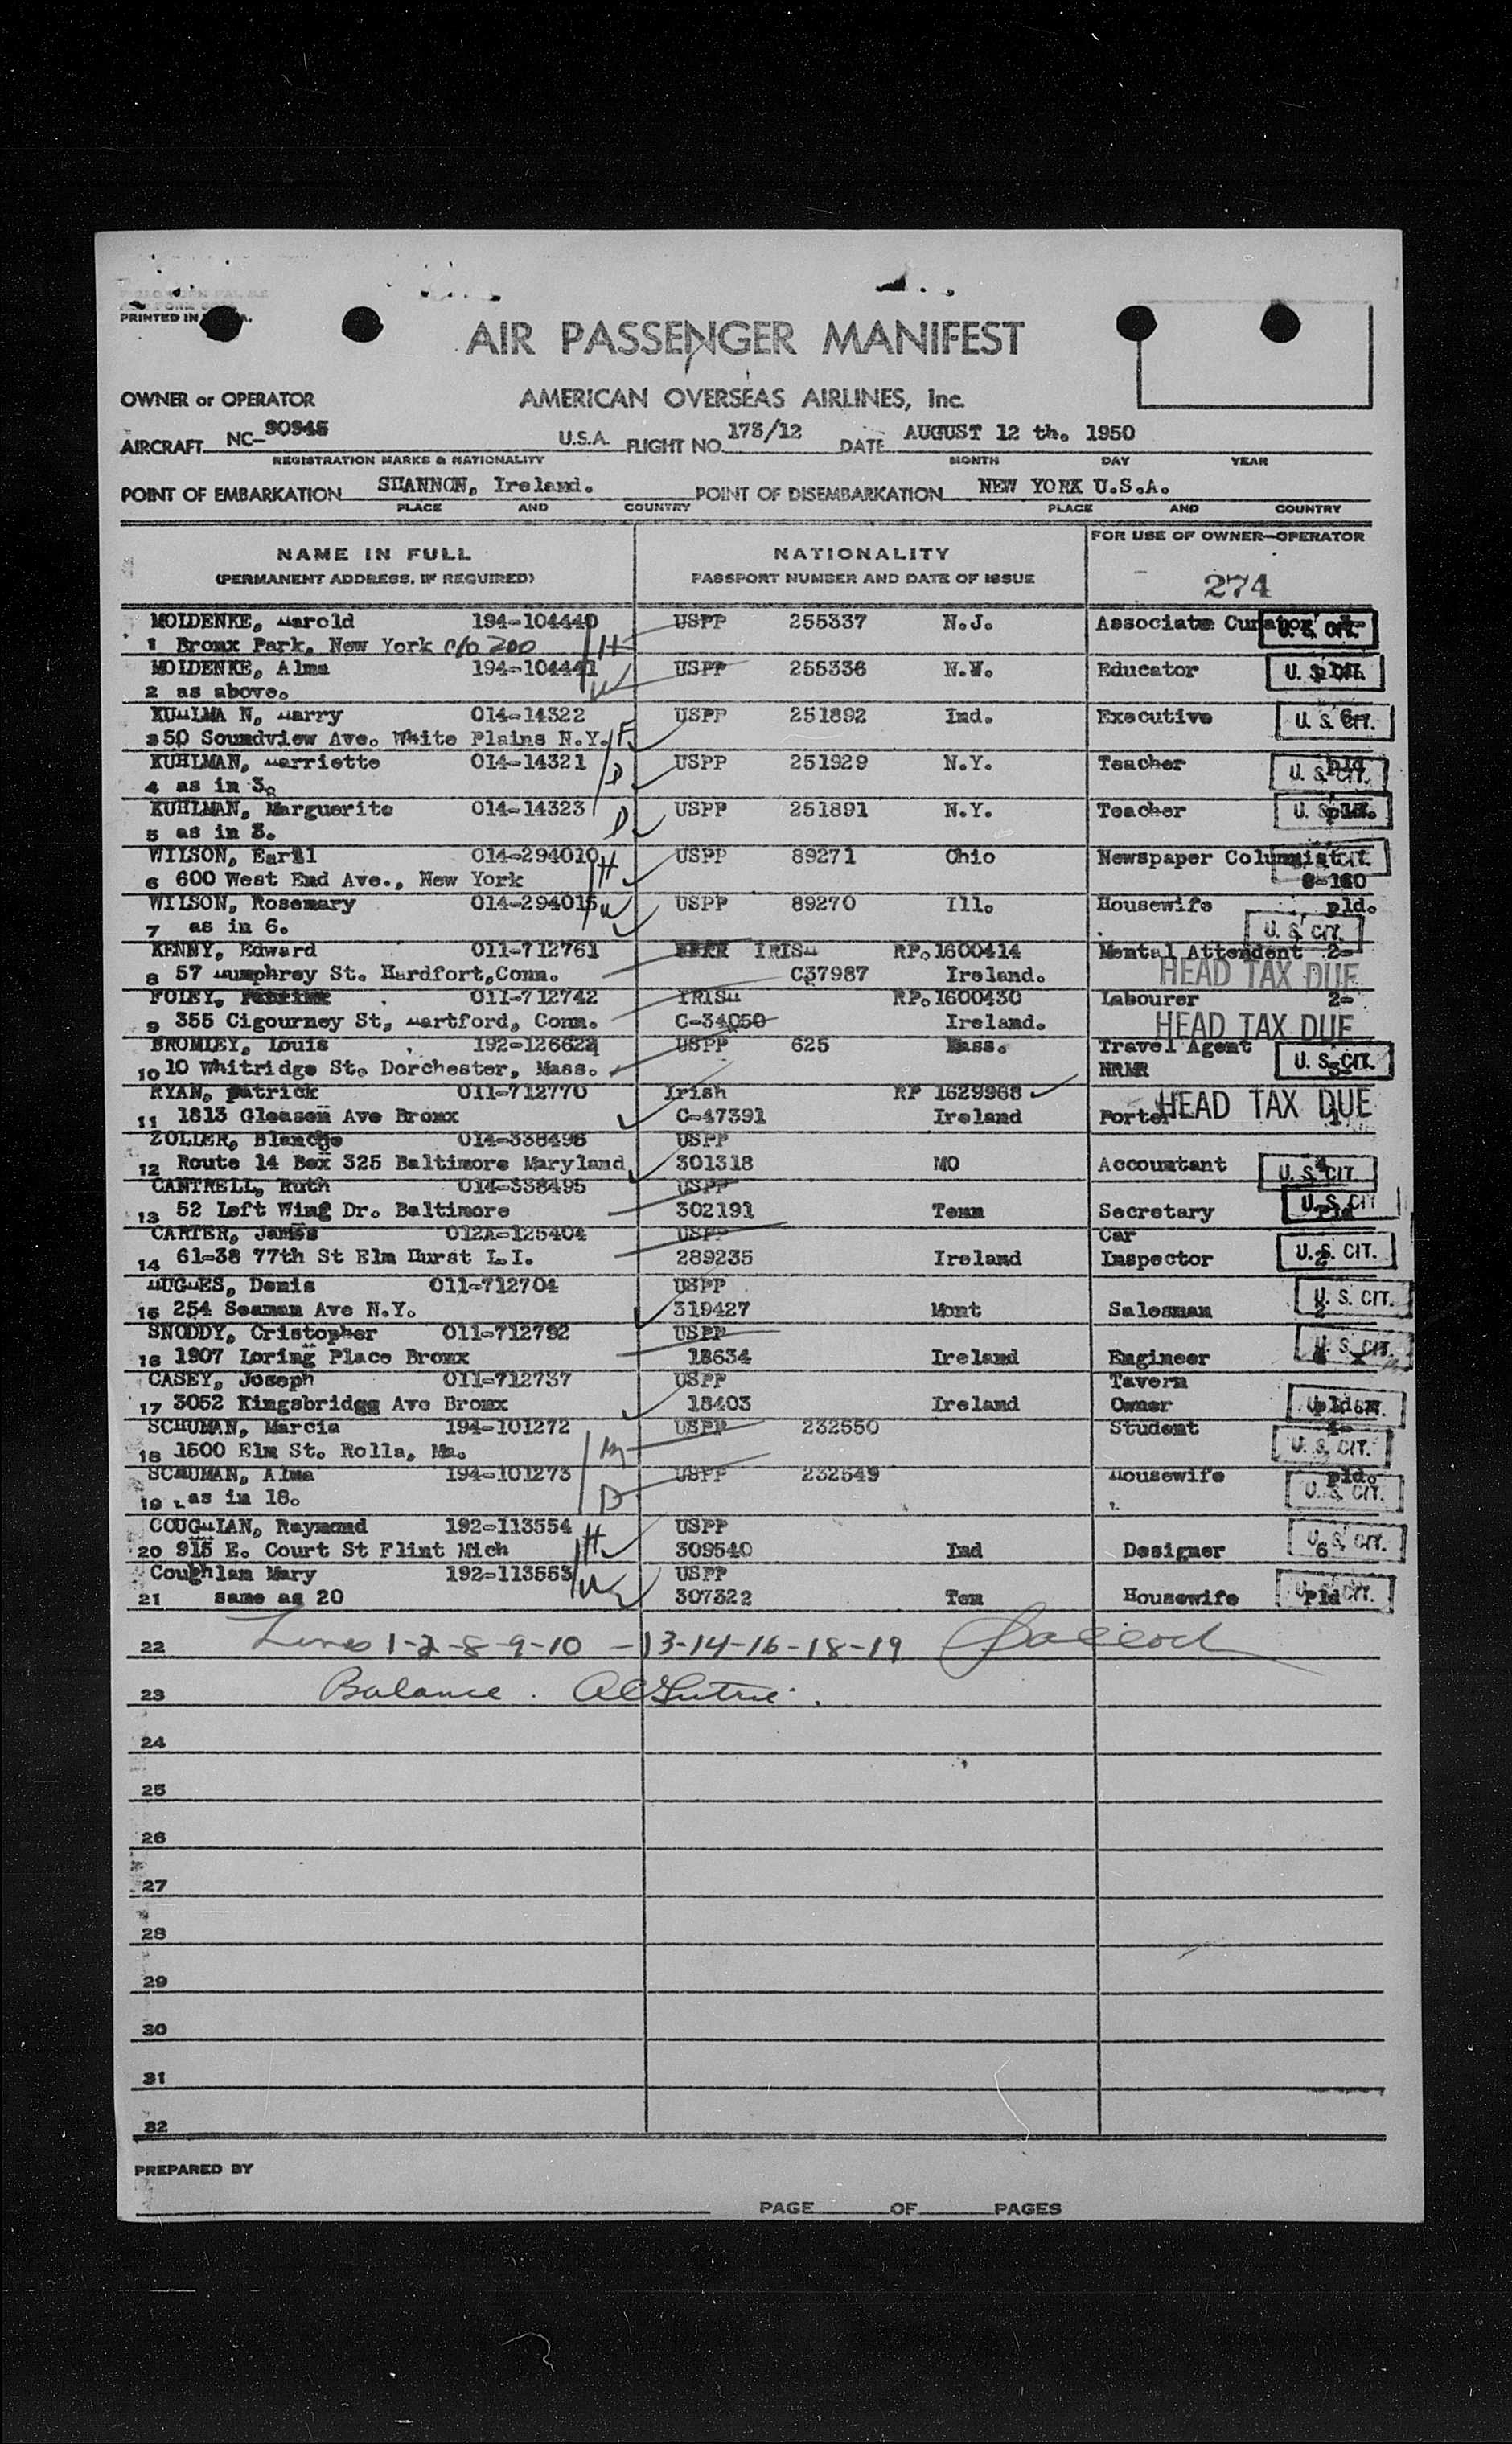 PRINTED IN
AIR PASSENGER MANIFEST
OWNER or OPERATOR AMERICAN OVERSEAS AIRLINES, Inc.
AIRCRAFT NC-90945 U.S.A. FLIGHT NO. 173/12 DATE AUGUST 12 th. 1950
REGISTRATION MARKS & NATIONALITY MONTH DAY YEAR
POINT OF EMBARKATION SHANNON, Ireland. POINT OF DISEMBARKATION NEW YORK U.S.A.
PLACE AND COUNTRY PLACE AND COUNTRY
NAME IN FULL NATIONALITY FOR USE OF OWNER—OPERATOR
(PERMANENT ADDRESS, IF REQUIRED) PASSPORT NUMBER AND DATE OF ISSUE 274
MOLDENKE, Harold 194-104440 USPP 255337 N.J. Associate Curator U. S. CIT.
1 Bronx Park, New York c/o zoo H
MOLDENKE, Alma 194-104441 USPP 255336 N.Y. Educator U. S. CIT.
2 as above. W
KUHLMA N, Harry 014-14322 USPP 251892 Ind. Executive U. S. CIT.
3 50 Soundview Ave. White Plains N.Y. F
KUHLMAN, Harriette 014-14321 USPP 251929 N.Y. Teacher pld U. S. CIT.
4 as in 3. D
KUHLMAN, Marguerite 014-14323 USPP 251891 N.Y. Teacher pld. U. S. CIT.
5 as in 3. D
WILSON, Earl 014-294010 USPP 89271 Ohio Newspaper Columnist
6 600 West End Ave., New York H
WILSON, Rosemary 014-294015 USPP 89270 Ill. Housewife pld.
7 as in 6. W U. S. CIT.
KENNY, Edward 011-712761 IRISH RP. 1600414 Mental Attendent 2-
8 57 Humphrey St. Hardfort, Conn. C37987 Ireland. HEAD TAX DUE
FOLEY, 011-712742 IRISH RP. 1600430 Labourer 2-
9 355 Cigourney St, Hartford, Conn. C-34050 Ireland. HEAD TAX DUE
BROMLEY, Louis 192-126622 USPP 625 Mass. Travel Agent
10 10 Whitridge St. Dorchester, Mass. U. S. CIT.
RYAN, patrick 011-712770 Irish RP 1629968
11 1813 Gleason Ave Bronx C-47391 Ireland Porter HEAD TAX DUE
ZOLLER, Blanche 014-338496 USPP
12 Route 14 Box 325 Baltimore Maryland 301318 MO Accountant U. S. CIT.
CANTRELL, Ruth 014-338495 USPP
13 52 Left Wing Dr. Baltimore 302191 Tenn Secretary Pld U. S. CIT
CARTER, James 012A-125404 USPP Car
14 61-38 77th St Elm Hurst L.I. 289235 Ireland Inspector 2 U. S. CIT.
HUGHES, Denis 011-712704 USPP
15 254 Seaman Ave N.Y. 319427 Mont Salesman 2 U. S. CIT.
SNODDY, Cristopher 011-712792 USPP
16 1907 Loring Place Bronx 18634 Ireland Engineer U. S. CIT.
CASEY, Joseph 011-712737 USPP Tavern
17 3052 Kingsbridge Ave Bronx 18403 Ireland Owner
SCHUMAN, Marcia 194-101272 USPP 232550 Student
18 1500 Elm St. Rolla, Mo. M U. S. CIT.
SCHUMAN, Alma 194-101273 USPP 232549 Housewife pld.
19 as in 18. D U. S. CIT.
COUGHLAN, Raymond 192-113554 USPP
20 915 E. Court St Flint Mich H 309540 Ind Designer 6 U. S. CIT.
Coughlan Mary 192-113553 USPP
21 same as 20 W 307322 Tex Housewife Pld U. S. CIT.
22 Lines 1-2-8-9-10-13-14-16-18-19
23 Balance.
24
25
26
27
28
29
30
31
32
PREPARED BY
PAGE OF PAGES